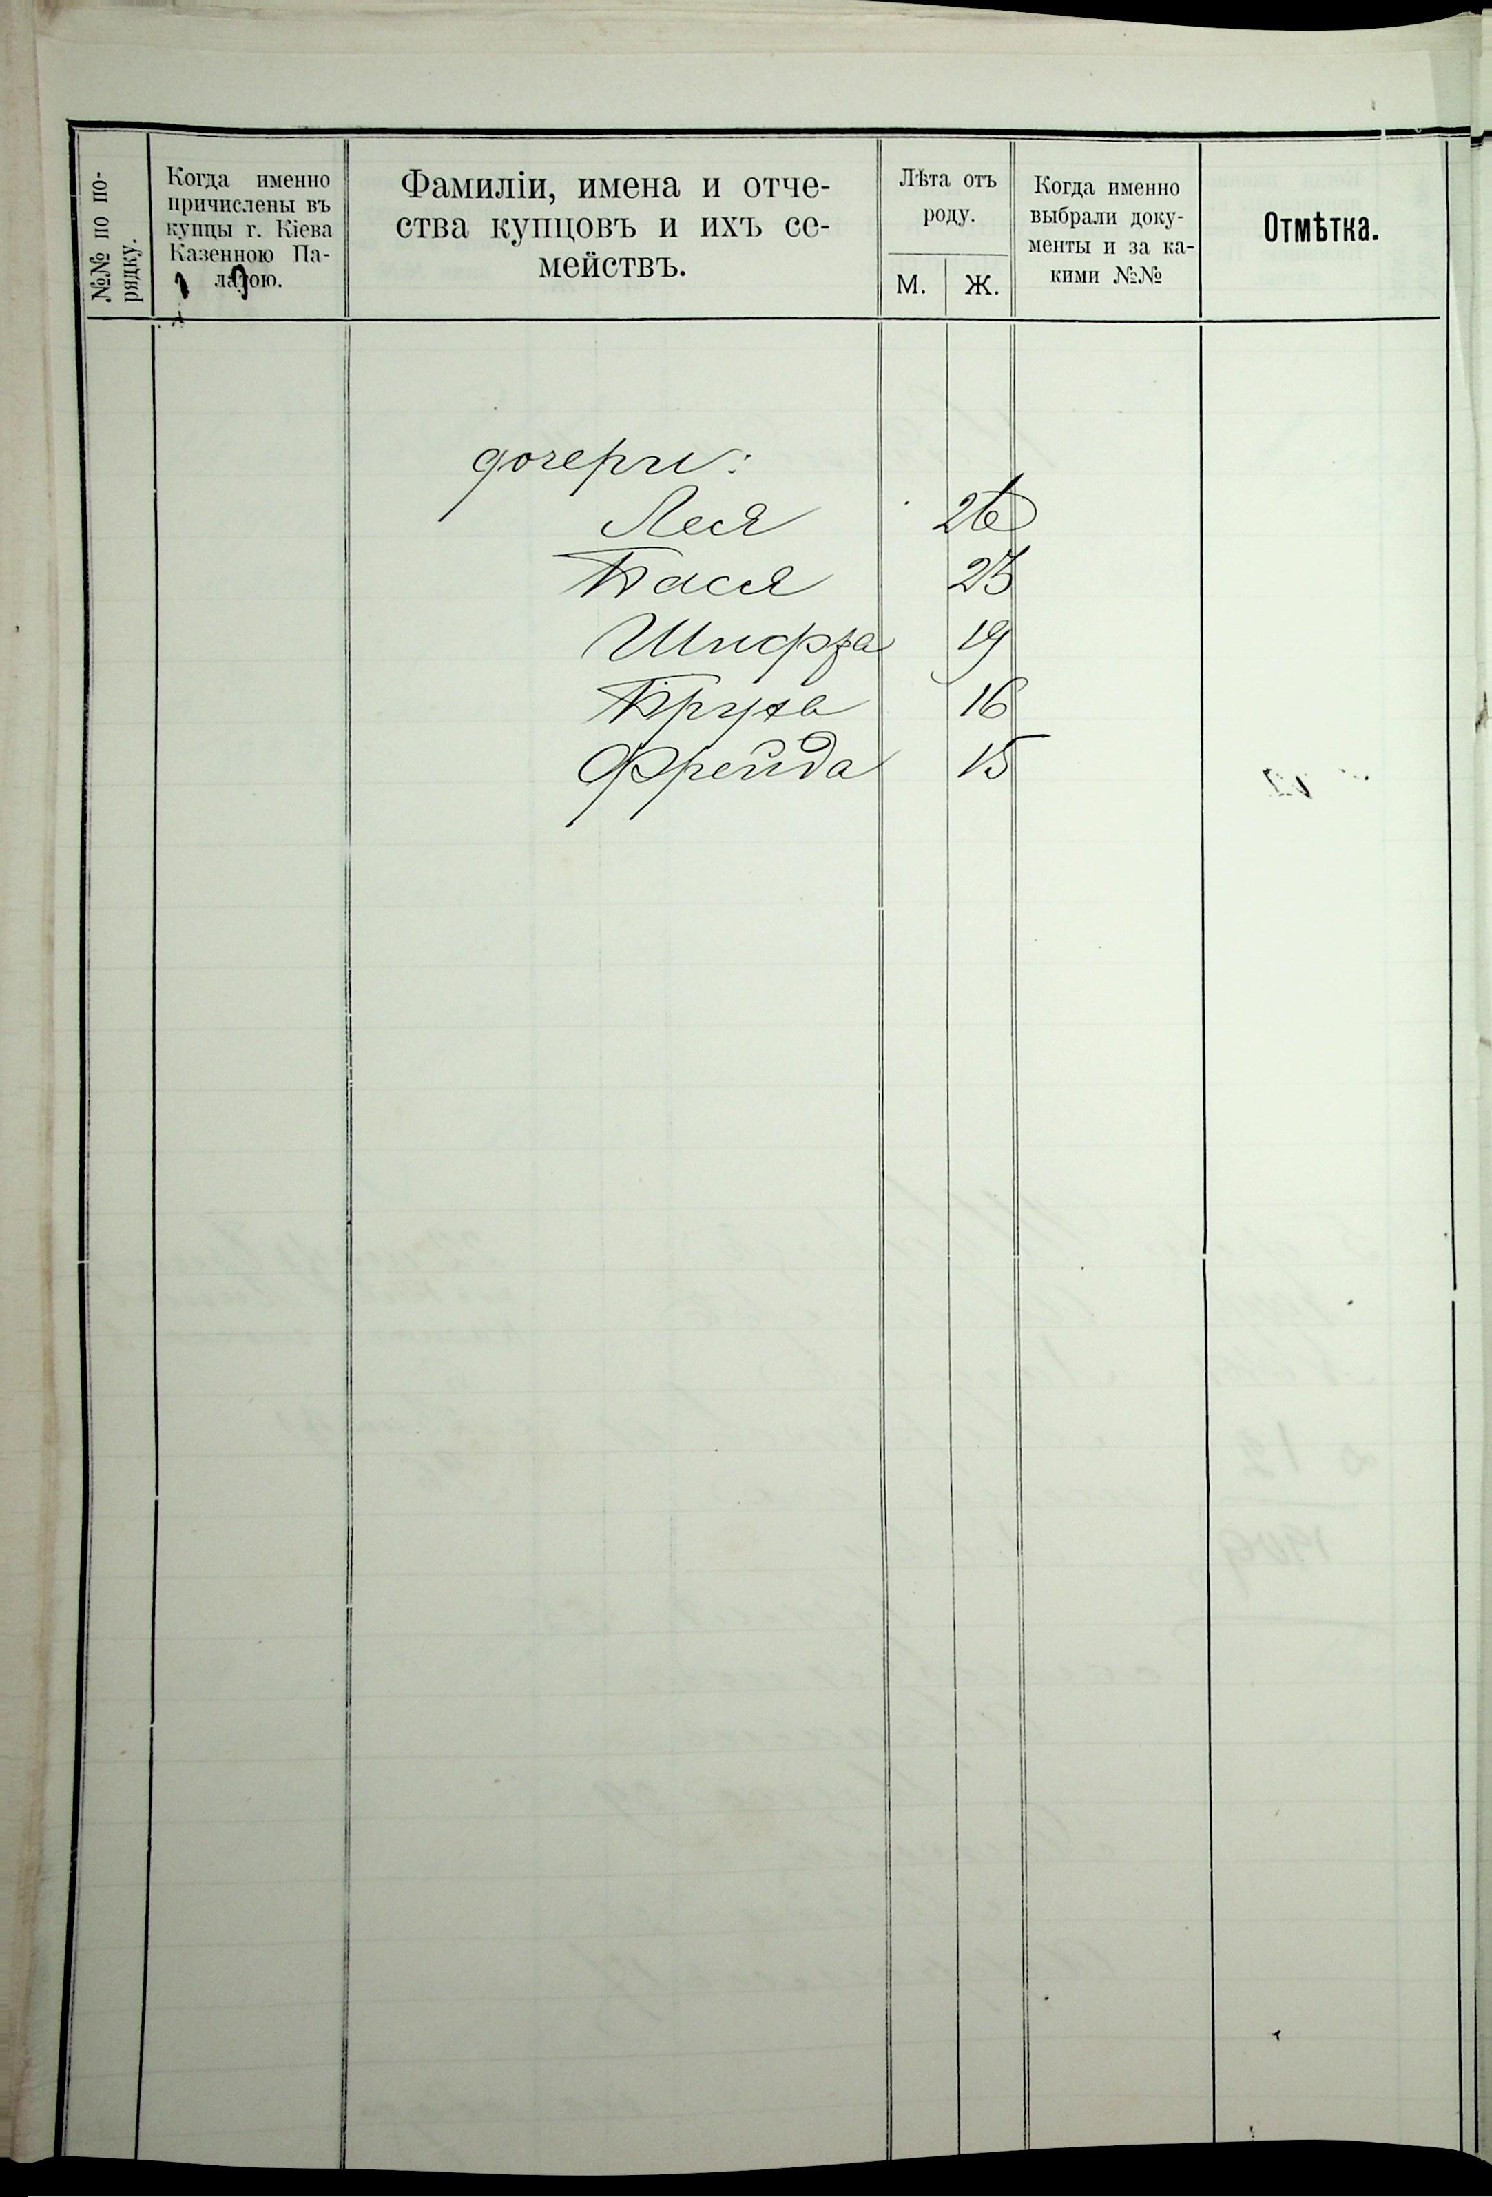 №№ по по-
рядку.
Когда именно
причислены въ
купцы г. Кіева
Казенною Па-
латою.
Фамиліи, имена и отче-
ства купцовъ и ихъ се-
мействъ.
Лѣта отъ
роду.
М.
Ж.
Когда именно
выбрали доку-
менты и за ка-
кими №№
Отмѣтка.
дочери:
Леся 26
Бася 23
Шифра 19
Бруха 16
Фрейда 15